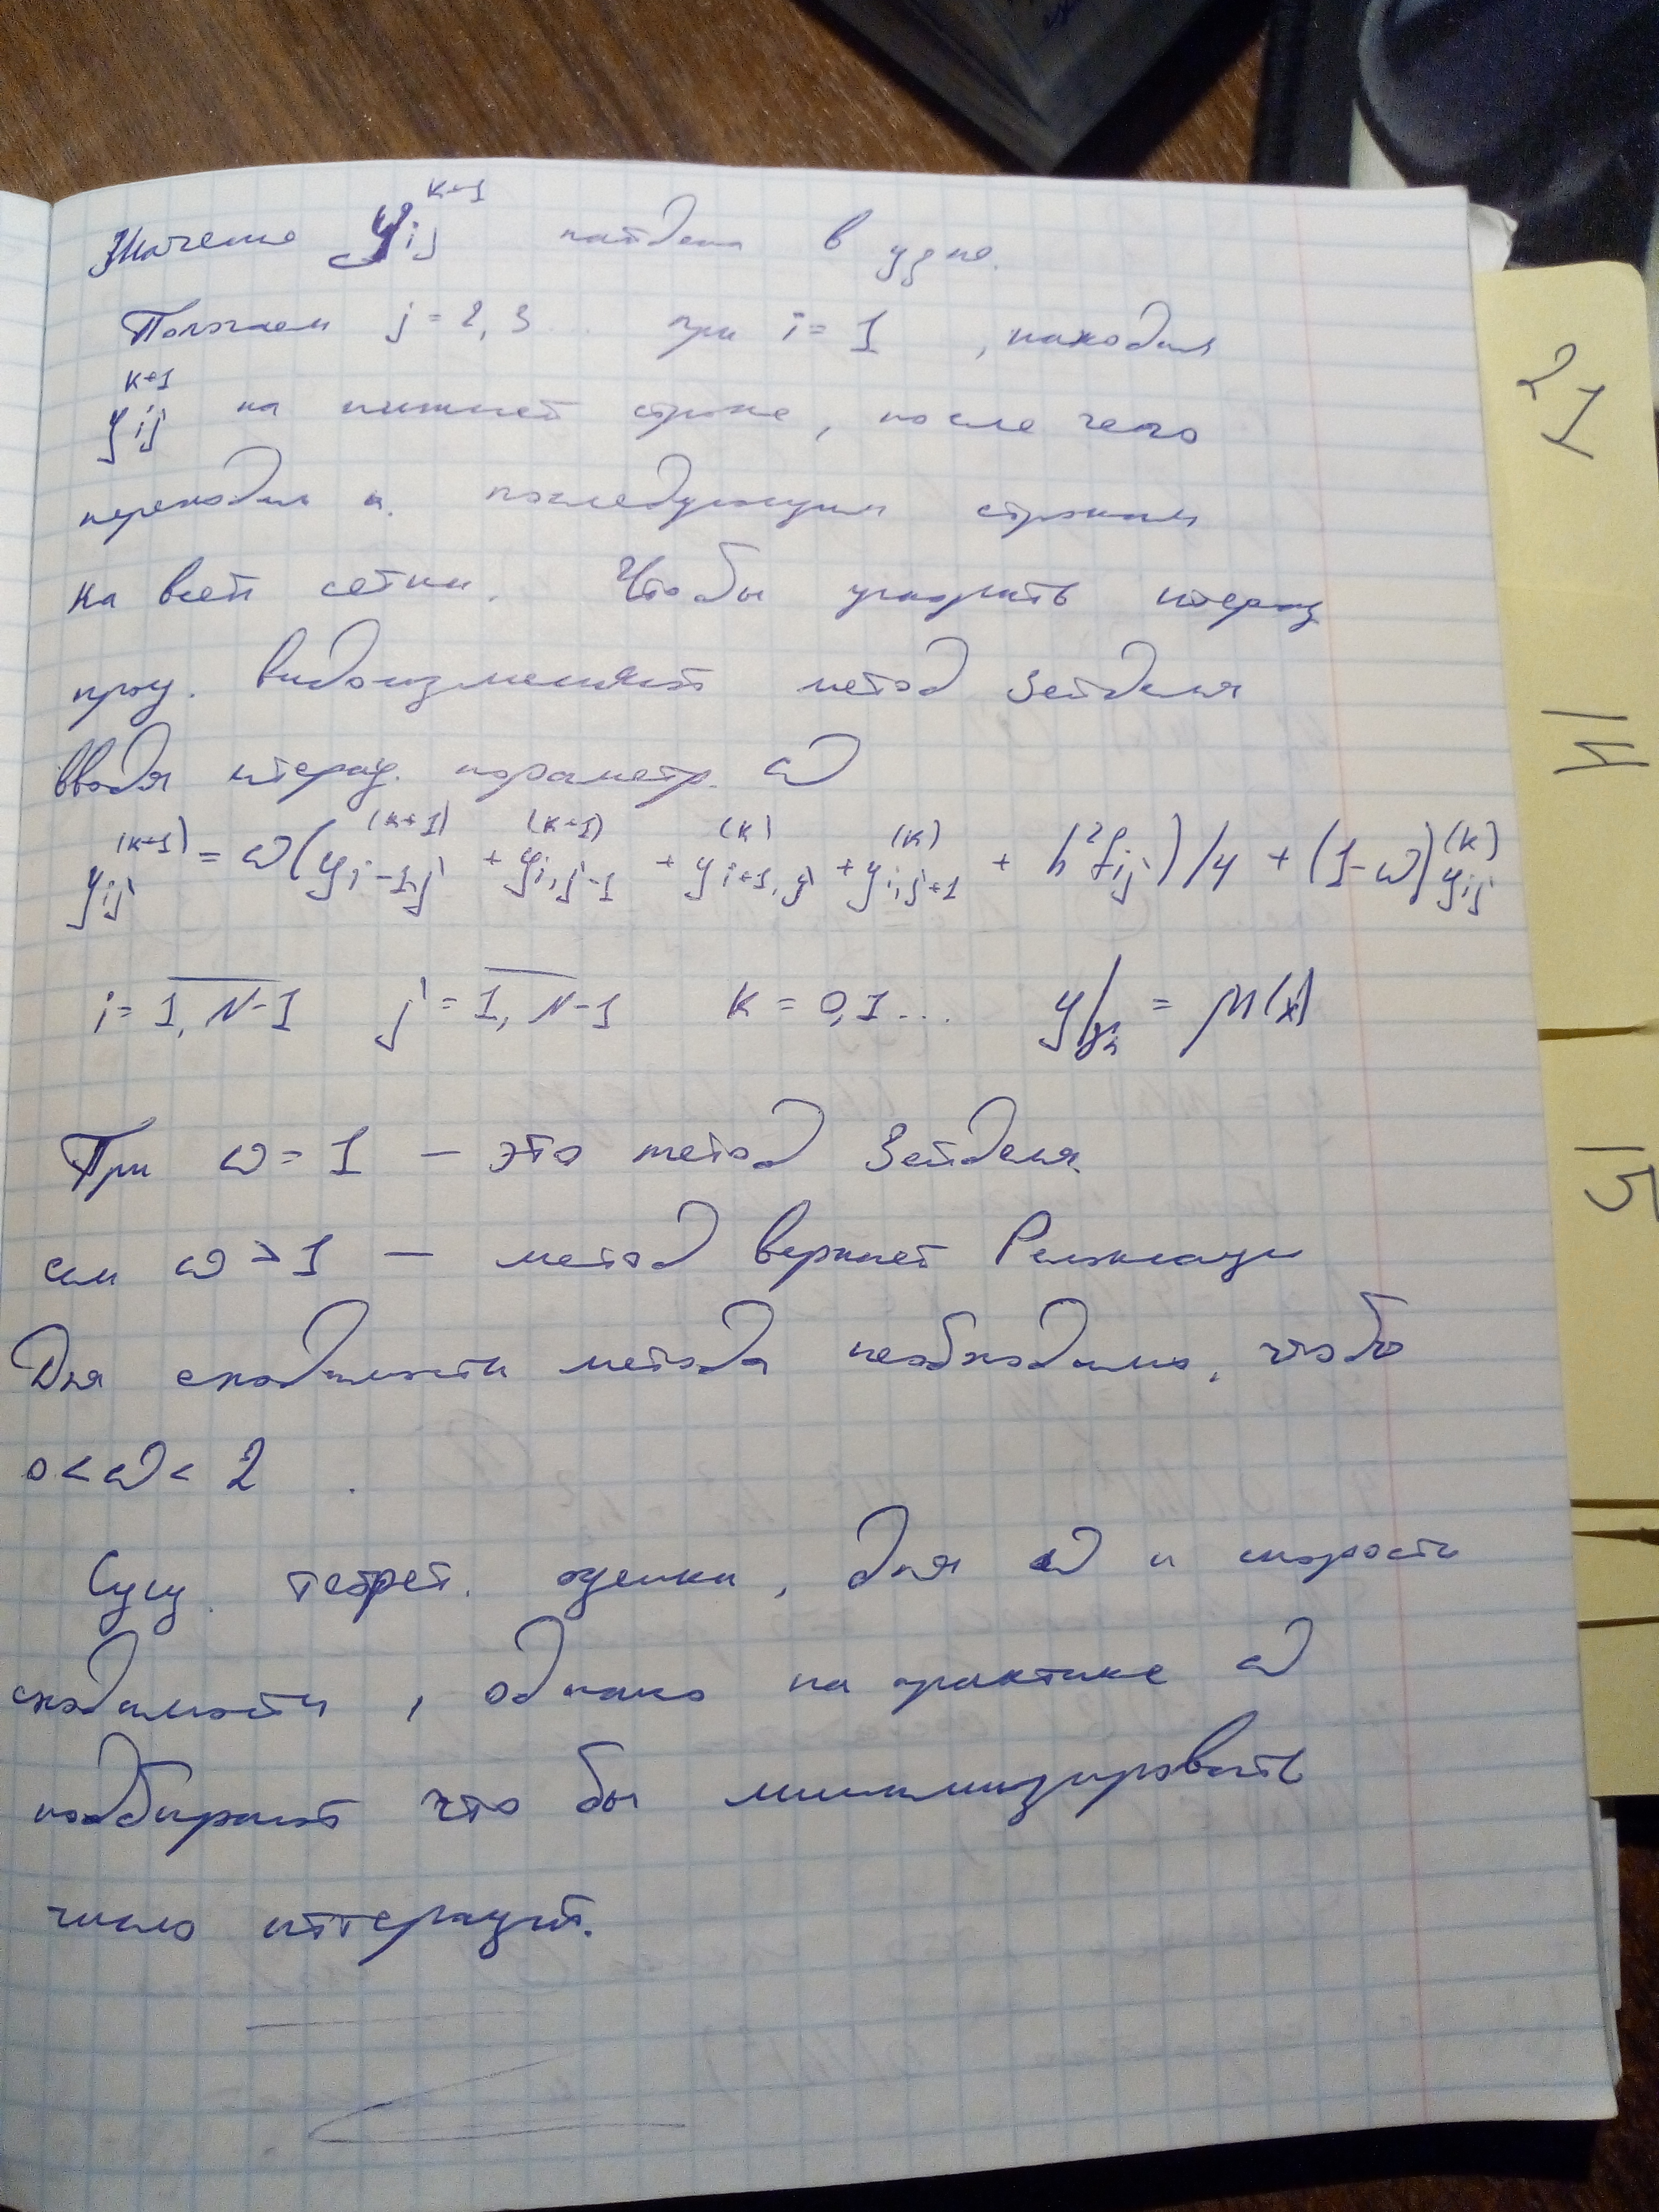 Значение y_{ij}^{k+1} найдено в узле.
Полагаем j = 2, 3... при i = 1, находим
y_{ij}^{k+1} на нижней строке, после чего
переходим к последующим строкам
на всей сетки. Чтобы ускорить итерац
проц. видоизменяют метод Зейделя
вводя итерац. параметр. ω
y_{ij}^{(k+1)} = ω(y_{i-1,j}^{(k+1)} + y_{i,j-1}^{(k+1)} + y_{i+1,j}^{(k)} + y_{i,j+1}^{(k)} + h²f_{ij})/4 + (1-ω)y_{ij}^{(k)}
i = \overline{1, N-1} j = \overline{1, N-1} k = 0,1... y|_{γ_h} = μ(x)
При ω = 1 – это метод Зейделя.
если ω > 1 – метод верхней Релаксаци
Для сходимости метода необходимо, чтобы
0 < ω < 2.
Сущ. теорет. оценки, для ω и скорости
сходимости, однако на практике ω
подбирают что бы минимизировать
число иттераций.
21
14
15